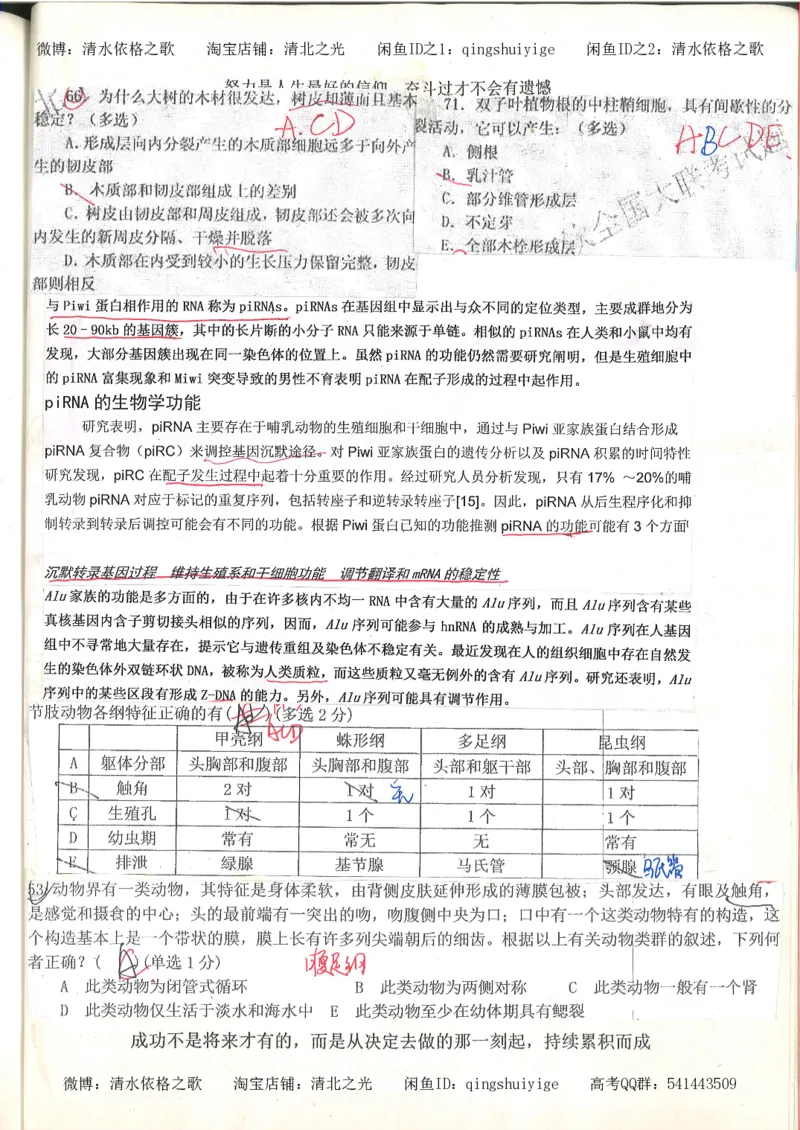 微博：清水依格之歌 淘宝店铺：清北之光 闲鱼ID之1：qingshuiyige 闲鱼ID之2：清水依格之歌
努力是人生最好的信仰，奋斗过才不会有遗憾
66. 为什么大树的木材很发达，树皮却薄而且基本
稳定？（多选）
A.CD
A.形成层向内分裂产生的木质部细胞远多于向外产
生的韧皮部
B. 木质部和韧皮部组成上的差别
C. 树皮由韧皮部和周皮组成，韧皮部还会被多次向
内发生的新周皮分隔、干燥并脱落
D. 木质部在内受到较小的生长压力保留完整，韧皮
部则相反
71. 双子叶植物根的中柱鞘细胞，具有间歇性的分
裂活动，它可以产生：（多选）
ABCDE
A. 侧根
B. 乳汁管
C. 部分维管形成层
D. 不定芽
E. 全部木栓形成层
全国大联考试
与 Piwi 蛋白相作用的 RNA 称为 piRNAs。piRNAs 在基因组中显示出与众不同的定位类型，主要成群地分为
长 20－90kb 的基因簇，其中的长片断的小分子 RNA 只能来源于单链。相似的 piRNAs 在人类和小鼠中均有
发现，大部分基因簇出现在同一染色体的位置上。虽然 piRNA 的功能仍然需要研究阐明，但是生殖细胞中
的 piRNA 富集现象和 Miwi 突变导致的男性不育表明 piRNA 在配子形成的过程中起作用。
piRNA 的生物学功能
研究表明，piRNA 主要存在于哺乳动物的生殖细胞和干细胞中，通过与 Piwi 亚家族蛋白结合形成
piRNA 复合物（piRC）来调控基因沉默途径。对 Piwi 亚家族蛋白的遗传分析以及 piRNA 积累的时间特性
研究发现，piRC 在配子发生过程中起着十分重要的作用。经过研究人员分析发现，只有 17% ～20%的哺
乳动物 piRNA 对应于标记的重复序列，包括转座子和逆转录转座子[15]。因此，piRNA 从后生程序化和抑
制转录到转录后调控可能会有不同的功能。根据 Piwi 蛋白已知的功能推测 piRNA 的功能可能有 3 个方面
沉默转录基因过程 维持生殖系和干细胞功能 调节翻译和 mRNA 的稳定性
Alu 家族的功能是多方面的，由于在许多核内不均一 RNA 中含有大量的 Alu 序列，而且 Alu 序列含有某些
真核基因内含子剪切接头相似的序列，因而，Alu 序列可能参与 hnRNA 的成熟与加工。Alu 序列在人基因
组中不寻常地大量存在，提示它与遗传重组及染色体不稳定有关。最近发现在人的组织细胞中存在自然发
生的染色体外双链环状 DNA，被称为人类质粒，而这些质粒又毫无例外的含有 Alu 序列。研究还表明，Alu
序列中的某些区段有形成 Z-DNA 的能力。另外，Alu 序列可能具有调节作用。
节肢动物各纲特征正确的有( )(多选 2 分)
ACD
甲壳纲 蛛形纲 多足纲 昆虫纲
A 躯体分部 头胸部和腹部 头胸部和腹部 头部和躯干部 头部、胸部和腹部
B 触角 2 对 1 对 无 1 对 1 对
C 生殖孔 1 对 1 个 1 个 1 个
D 幼虫期 常有 常无 无 常有
E 排泄 绿腺 基节腺 马氏管 颚腺 马氏管
53、动物界有一类动物，其特征是身体柔软，由背侧皮肤延伸形成的薄膜包被；头部发达，有眼及触角，
是感觉和摄食的中心；头的最前端有一突出的吻，吻腹侧中央为口；口中有一个这类动物特有的构造，这
个构造基本上是一个带状的膜，膜上长有许多列尖端朝后的细齿。根据以上有关动物类群的叙述，下列何
者正确？( )(单选 1 分) 腹足纲
A 此类动物为闭管式循环 B 此类动物为两侧对称 C 此类动物一般有一个肾
D 此类动物仅生活于淡水和海水中 E 此类动物至少在幼体期具有鳃裂
成功不是将来才有的，而是从决定去做的那一刻起，持续累积而成
微博：清水依格之歌 淘宝店铺：清北之光 闲鱼ID：qingshuiyige 高考QQ群：541443509